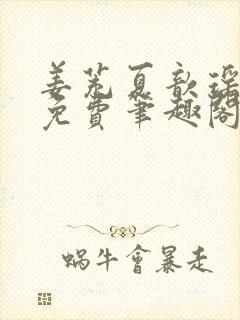 姜荒夏歆瑶
免費筆趣閣
蝸牛會暴走